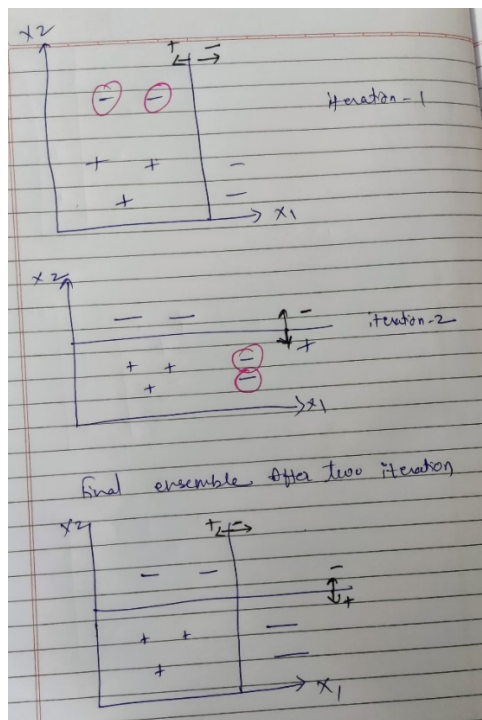 x2
+ -
- -
iteration-1
+ + -
+ -
x1
x2
- - -
iteration-2
+
+ + -
+ -
x1
final ensemble After two iteration
x2 + -
- - -
+
+ + -
+ -
x1